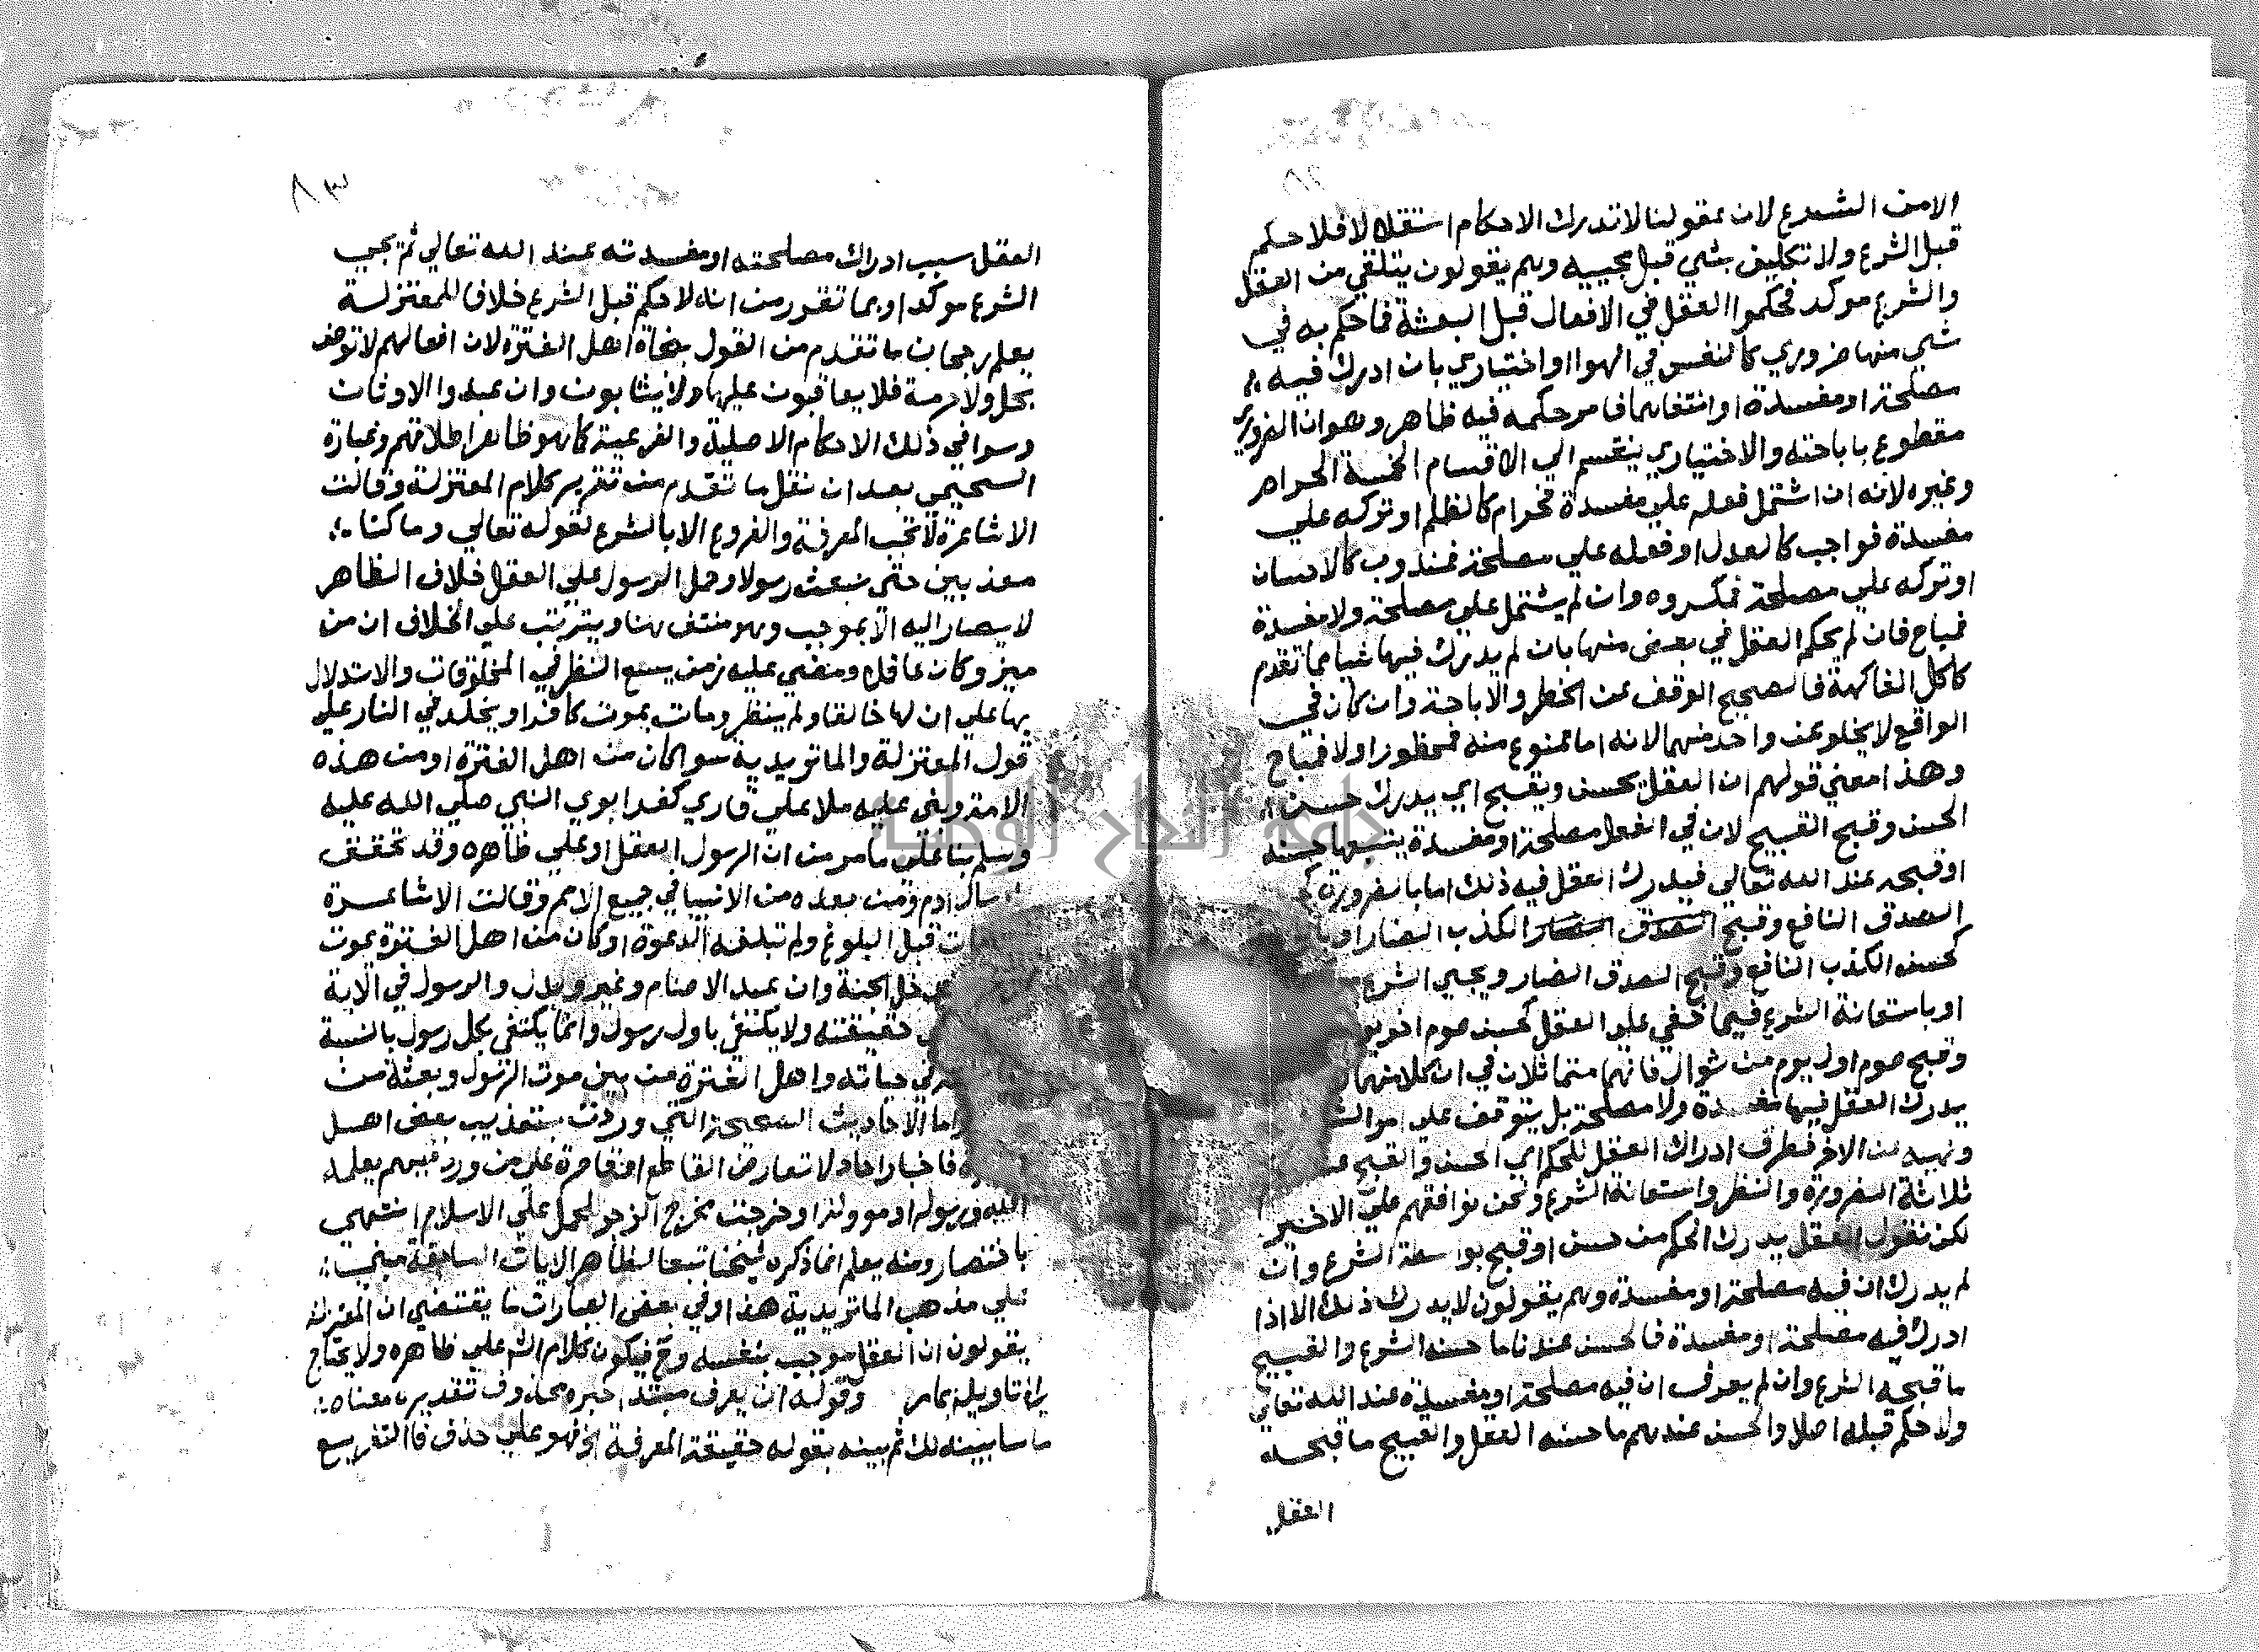 ٨٢
الا من الشرع لان عقولنا لا تدرك الاحكام استقلالا فلا حكم
قبل الشرع ولا تكليف بشي قبل مجييه وهم يقولون يتلقي من العقل
والشرع موكد فحكموا العقل في الافعال قبل البعثة فما حكم به في
شي منها ضروري كالتنفس في الهوا او اختياري بان ادرك فيه
مصلحة او مفسدة او انتفاهما فامر حكمه فيه ظاهر وهو ان الضروري
مقطوع باباحته والاختياري ينقسم الي الاقسام الخمسة الحرام
وغيره لانه ان اشتمل فعله علي مفسدة فحرام كالظلم او تركه علي
مفسدة فواجب كالعدل او فعله علي مصلحة فمندوب كالاحسان
او تركه علي مصلحة فمكروه وان لم يشتمل علي مصلحة ولا مفسدة
فمباح فان لم يحكم العقل في بعض منها بان لم يدرك فيها شيا مما تقدم
كاكل الفاكهة فالصحيح الوقف عن الحظر والاباحة وان كان في
الواقع لا يخلو عن واحد منهما لانه اما ممنوع منه فمحظور او لا فمباح
وهذا معني قولهم ان العقل يحسن ويقبح اي يدرك حسن
الحسن وقبح القبيح لان في الفعل مصلحة او مفسدة يتبعها حسنه
او قبحه عند الله تعالي فيدرك العقل فيه ذلك اما بالضرورة
الصدق النافع وقبح الكذب الضار او
كحسن الكذب النافع وقبح الصدق الضار ويجيي الشرع
او باستعانة الشرع فيما خفي علي العقل كحسن صوم اخر يوم
وقبح صوم اول يوم من شوال فانهما متماثلان في ان كلا منهما
يدرك العقل فيها مفسدة ولا مصلحة بل يتوقف علي امر
ونهيه عن الاخر فطرف ادراك العقل للحكم اي الحسن والقبح
ثلاثة الضرورة والنظر واستعانة الشرع ونحن نوافقهم علي الاخير
لكن نقول العقل يدرك الحكم من حسن او قبح بواسطة الشرع وان
لم يدرك ان فيه مصلحة او مفسدة وهم يقولون لا يدرك ذلك الا اذا
ادرك فيه مصلحة او مفسدة فالحسن عندنا ما حسنه الشرع والقبيح
ما قبحه الشرع وان لم يعرف ان فيه مصلحة او مفسدة عند الله تعالي
ولا حكم قبله اصلا والحسن عندهم ما حسنه العقل والقبيح ما قبحه
العقل
٨٣
العقل سبب ادراك مصلحته او مفسدته عند الله تعالي ثم يجي
الشرع موكدا وبما تقرر من انه لا حكم قبل الشرع خلافا للمعتزلة
يعلم رجحان ما تقدم من القول بنجاة اهل الفترة لان افعالهم لا توصف
بحل ولا حرمة فلا يعاقبون عليها ولا يثابون وان عبدوا الاوثان
وسوا في ذلك الاحكام الاصلية والفرعية كما هو ظاهر اطلاقهم وعبارة
السحيمي بعد ان نقل ما تقدم من تقرير كلام المعتزلة وقالت
الاشاعرة لا تجب المعرفة والفروع الا بالشرع لقوله تعالي وما كنا
معذبين حتي نبعث رسولا وحمل الرسول علي العقل خلاف الظاهر
لا يصار اليه الا بموجب وهو منتف هنا ويترتب علي الخلاف ان من
ميز وكان عاقلا ومضي عليه زمن يسع النظر في المخلوقات والاستدلال
بها علي ان لها خالقا ولم ينظر ومات يموت كافرا ويخلد في النار علي
قول المعتزلة والماتريدية سوا كان من اهل الفترة او من هذه
الامة وبني عليه ملا علي قاري كفر ابوي النبي صلي الله عليه
وسلم بنا علي ما مر من ان الرسول العقل او علي ظاهره وقد تحقق
ارسال ادم ومن بعده من الانبيا في جميع الامم وقالت الاشاعرة
مات قبل البلوغ ولم تبلغه الدعوة او كان من اهل الفترة يموت
يدخل الجنة وان عبد الاصنام وغير وبدل والرسول في الاية
حقيقته ولا يكتفي باول رسول وانما يكتفي بكل رسول بالنسبة
في حياته واهل الفترة من بين موت الرسول وبعثة من
واما الاحاديث الصحيحة التي وردت بتعذيب بعض اهل
فاخبار احاد لا تعارض القاطع او قاصرة علي من ورد فيهم يعلمه
الله ورسوله او موولة او خرجت مخرج الزجر للحمل علي الاسلام انتهي
باختصار ومنه يعلم انما ذكره شيخنا تبعا لظاهر الايات السابقة مبني
علي مذهب الماتريدية هذا وفي بعض العبارات ما يقتضي ان المعتزلة
يقولون ان العقل موجب بنفسه وح فيكون كلام الش علي ظاهره ولا يحتاج
تاويله بمامر وقوله ان يعرف مبتدا خبره محذوف تقديره معناه
ما سابينه لك ثم بينه بقوله حقيقة المعرفة الخ فهو علي حذف فا التفريع
جامعة النجاح الوطنية